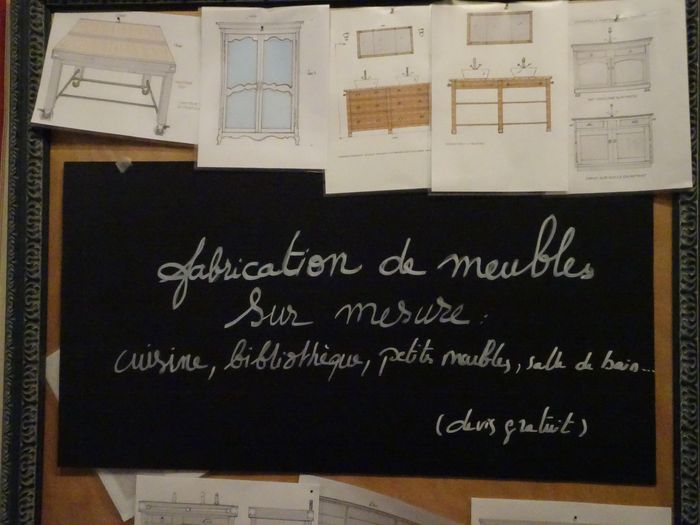 fabrication de meubles
sur mesure :
cuisine, bibliothèque, petits meubles, salle de bain...
(devis gratuit)